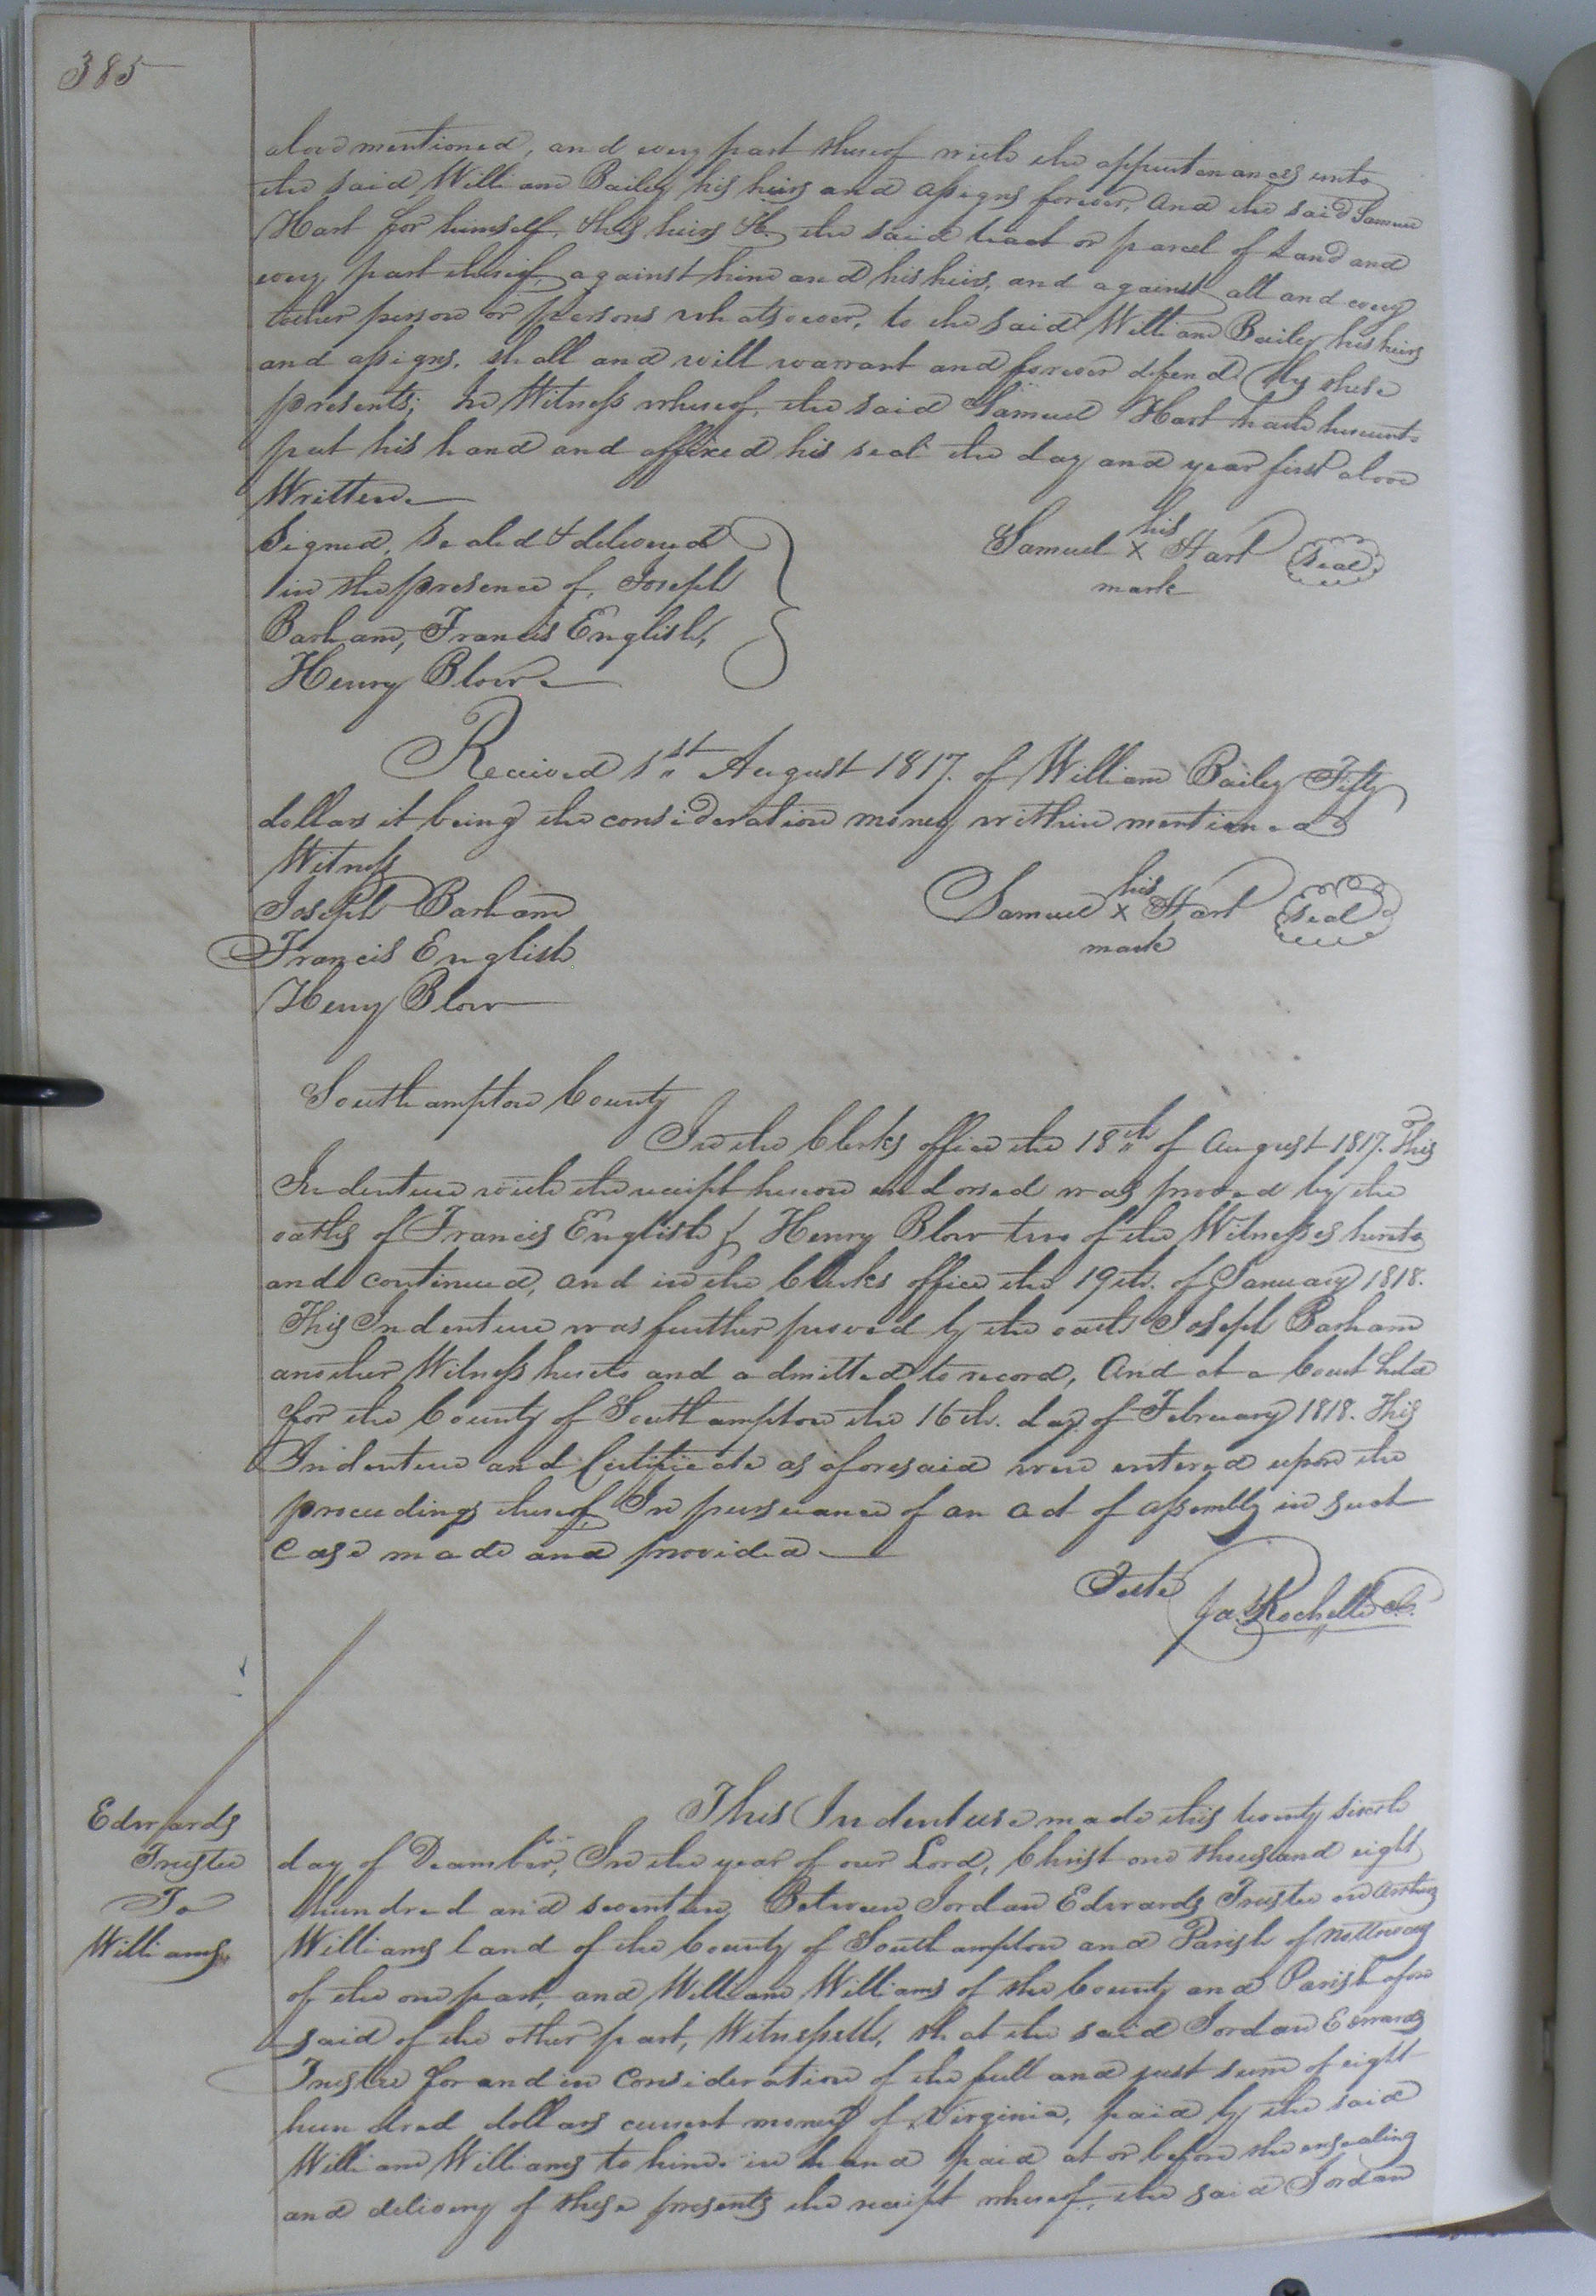 385
above mentioned, and every part thereof with the appurtenances unto
the said William Bailey his heirs and assigns forever, And the said Samuel
Hart for himself, & his heirs &c. the said tract or parcel of Land and
every part thereof, against him and his heirs, and against all and every
other person or persons whatsoever, to the said William Bailey his heirs
and assigns, shall and will warrant and forever defend by these
presents; In Witness whereof, the said Samuel Hart hath hereunto
put his hand and affixed his seal the day and year first above
Written.
Signed, Sealed & delivered
in the presence of, Joseph
Barham, Francis English,
Henry Blow.
his
Samuel X Hart Seal
mark
Received 1st August 1817. of William Bailey Fifty
dollars it being the consideration money within mentioned
Witness
Joseph Barham
Francis English
Henry Blow
his
Samuel X Hart Seal
mark
Southampton County
In the Clerks office the 18th of August 1817. This
Indenture with the receipt hereon endorsed was proved by the
oaths of Francis English & Henry Blow two of the Witnesses hereto
and continued, and in the Clerks office the 19th. of January 1818.
This Indenture was further proved by the oath Joseph Barham
another Witness hereto and admitted to record, And at a Court held
for the County of Southampton the 16th. day of February 1818. This
Indenture and Certificate as aforesaid were entered upon the
proceedings thereof, In pursuance of an act of assembly in such
Case made and provided
Teste
Jas. Rochelle C.
Edwards
Trustee
To
Williams
This Indenture made this twenty sixth
day of December, In the year of our Lord, Christ one thousand eight
hundred and seventeen, Between Jordan Edwards Trustee on
Williams land of the County of Southampton and Parish of Nottoway
of the one part, and William Williams of the County and Parish afore
said of the other part, Witnesseth, that the said Jordan Edwards
Trustee for and in Consideration of the full and just sum of eight
hundred dollars current money of Virginia, paid by the said
William Williams to him in hand paid at or before the ensealing
and delivery of these presents the receipt whereof, the said Jordan